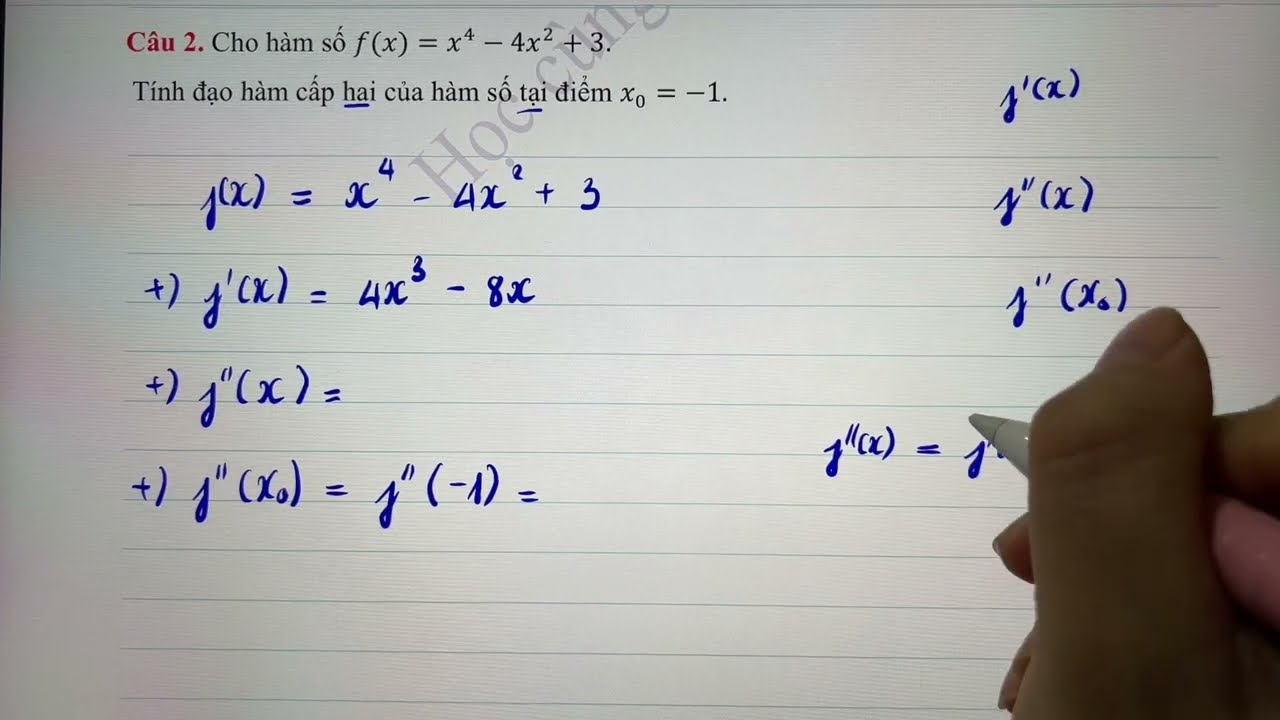 Câu 2. Cho hàm số f(x) = x⁴ − 4x² + 3.
Tính đạo hàm cấp hai của hàm số tại điểm x₀ = −1.
Học cùng
f'(x)
f(x) = x⁴ - 4x² + 3
f''(x)
+) f'(x) = 4x³ - 8x
f''(x₀)
+) f''(x) =
f''(x) = f'
+) f''(x₀) = f''(-1) =